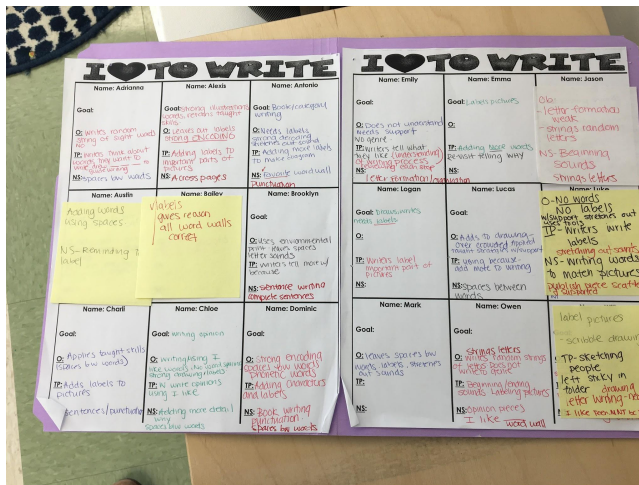 I TO WRITE
Name: Adrianna
Goal:
O: Writes random
string of
TP: Writers think about
words they want to
NS: spaces b/w words
Name: Alexis
Goal: strong illustrations
words, retains taught
skills
O: Leaves out labels
strong ENCODING
TP: Adding labels to
important parts of
pictures
NS: Across pages
Name: Antonio
Goal: Book/category
writing
O: Needs labels
strong decoding
stretches out sounds
TP: Adding more labels
to make diagram
NS: Favorite word wall
Punctuation
Name: Austin
Adding words
using spaces
NS-Reminding
label
Name: Bailey
labels
gives reason
all word walls
correct
Name: Brooklyn
Goal:
O: uses environmental
print leaves spaces
letter sounds
TP: writers tell more w/
because
NS: sentence writing
complete sentences
Name: Charli
Goal:
O: Applies taught skills
(spaces b/w words)
TP: Adds labels to
pictures
sentences/punctuation
Name: Chloe
Goal: writing opinion
O: Writing using I
like words
strong drawing
TP: write opinions
using I like
NS: Adding more detail
why
spaces b/w words
Name: Dominic
Goal:
O: strong encoding
spaces b/w words
phonetic words
TP: Adding characters
and labels
NS: Book writing
punctuation
spaces b/w words
I TO WRITE
Name: Emily
Goal:
O: Does not understand
needs support
NO genre
TP: Writers tell what
they like (understanding)
of writing process
NS:
letter formation/
Name: Emma
Goal: Labels pictures
O:
TP: Adding more words
re-visit telling why
NS:
Name: Jason
letter formation
weak
- strings random
letters
NS-Beginning
sounds
strings letters
Name: Logan
Goal: draws/writes
needs labels
O:
TP: Writers label
important part of
pictures
NS:
Name: Lucas
Goal:
O: Adds to drawing-
over crowded
TP: using because-
add more to writing
NS: spaces between
words
Name: Luke
O-No words
No labels
w/support stretches out
uses tools
TP- Writers write
labels
stretching out sounds
NS-writing words
to match pictures
publish more
if supported
Name: Mark
Goal:
O: leaves spaces b/w
words, labels, stretches
out sounds
TP:
NS:
Name: Owen
Goal:
strings letters
O: Writes random strings
of letters does not
TP: Beginning/ending
sounds labeling pictures
NS: Opinion pieces
I like word wall
label pictures
- scribble drawing
TP-sketching
people
left sticky in
folder
letter writing